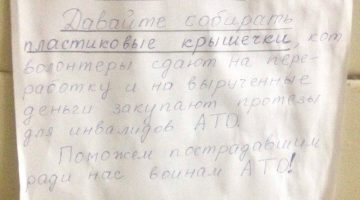 Давайте собирать
пластиковые крышечки, кот.
волонтеры сдают на пере-
работку и на вырученные
деньги закупают протезы
для инвалидов АТО.
Поможем пострадавшим
ради нас воинам АТО!